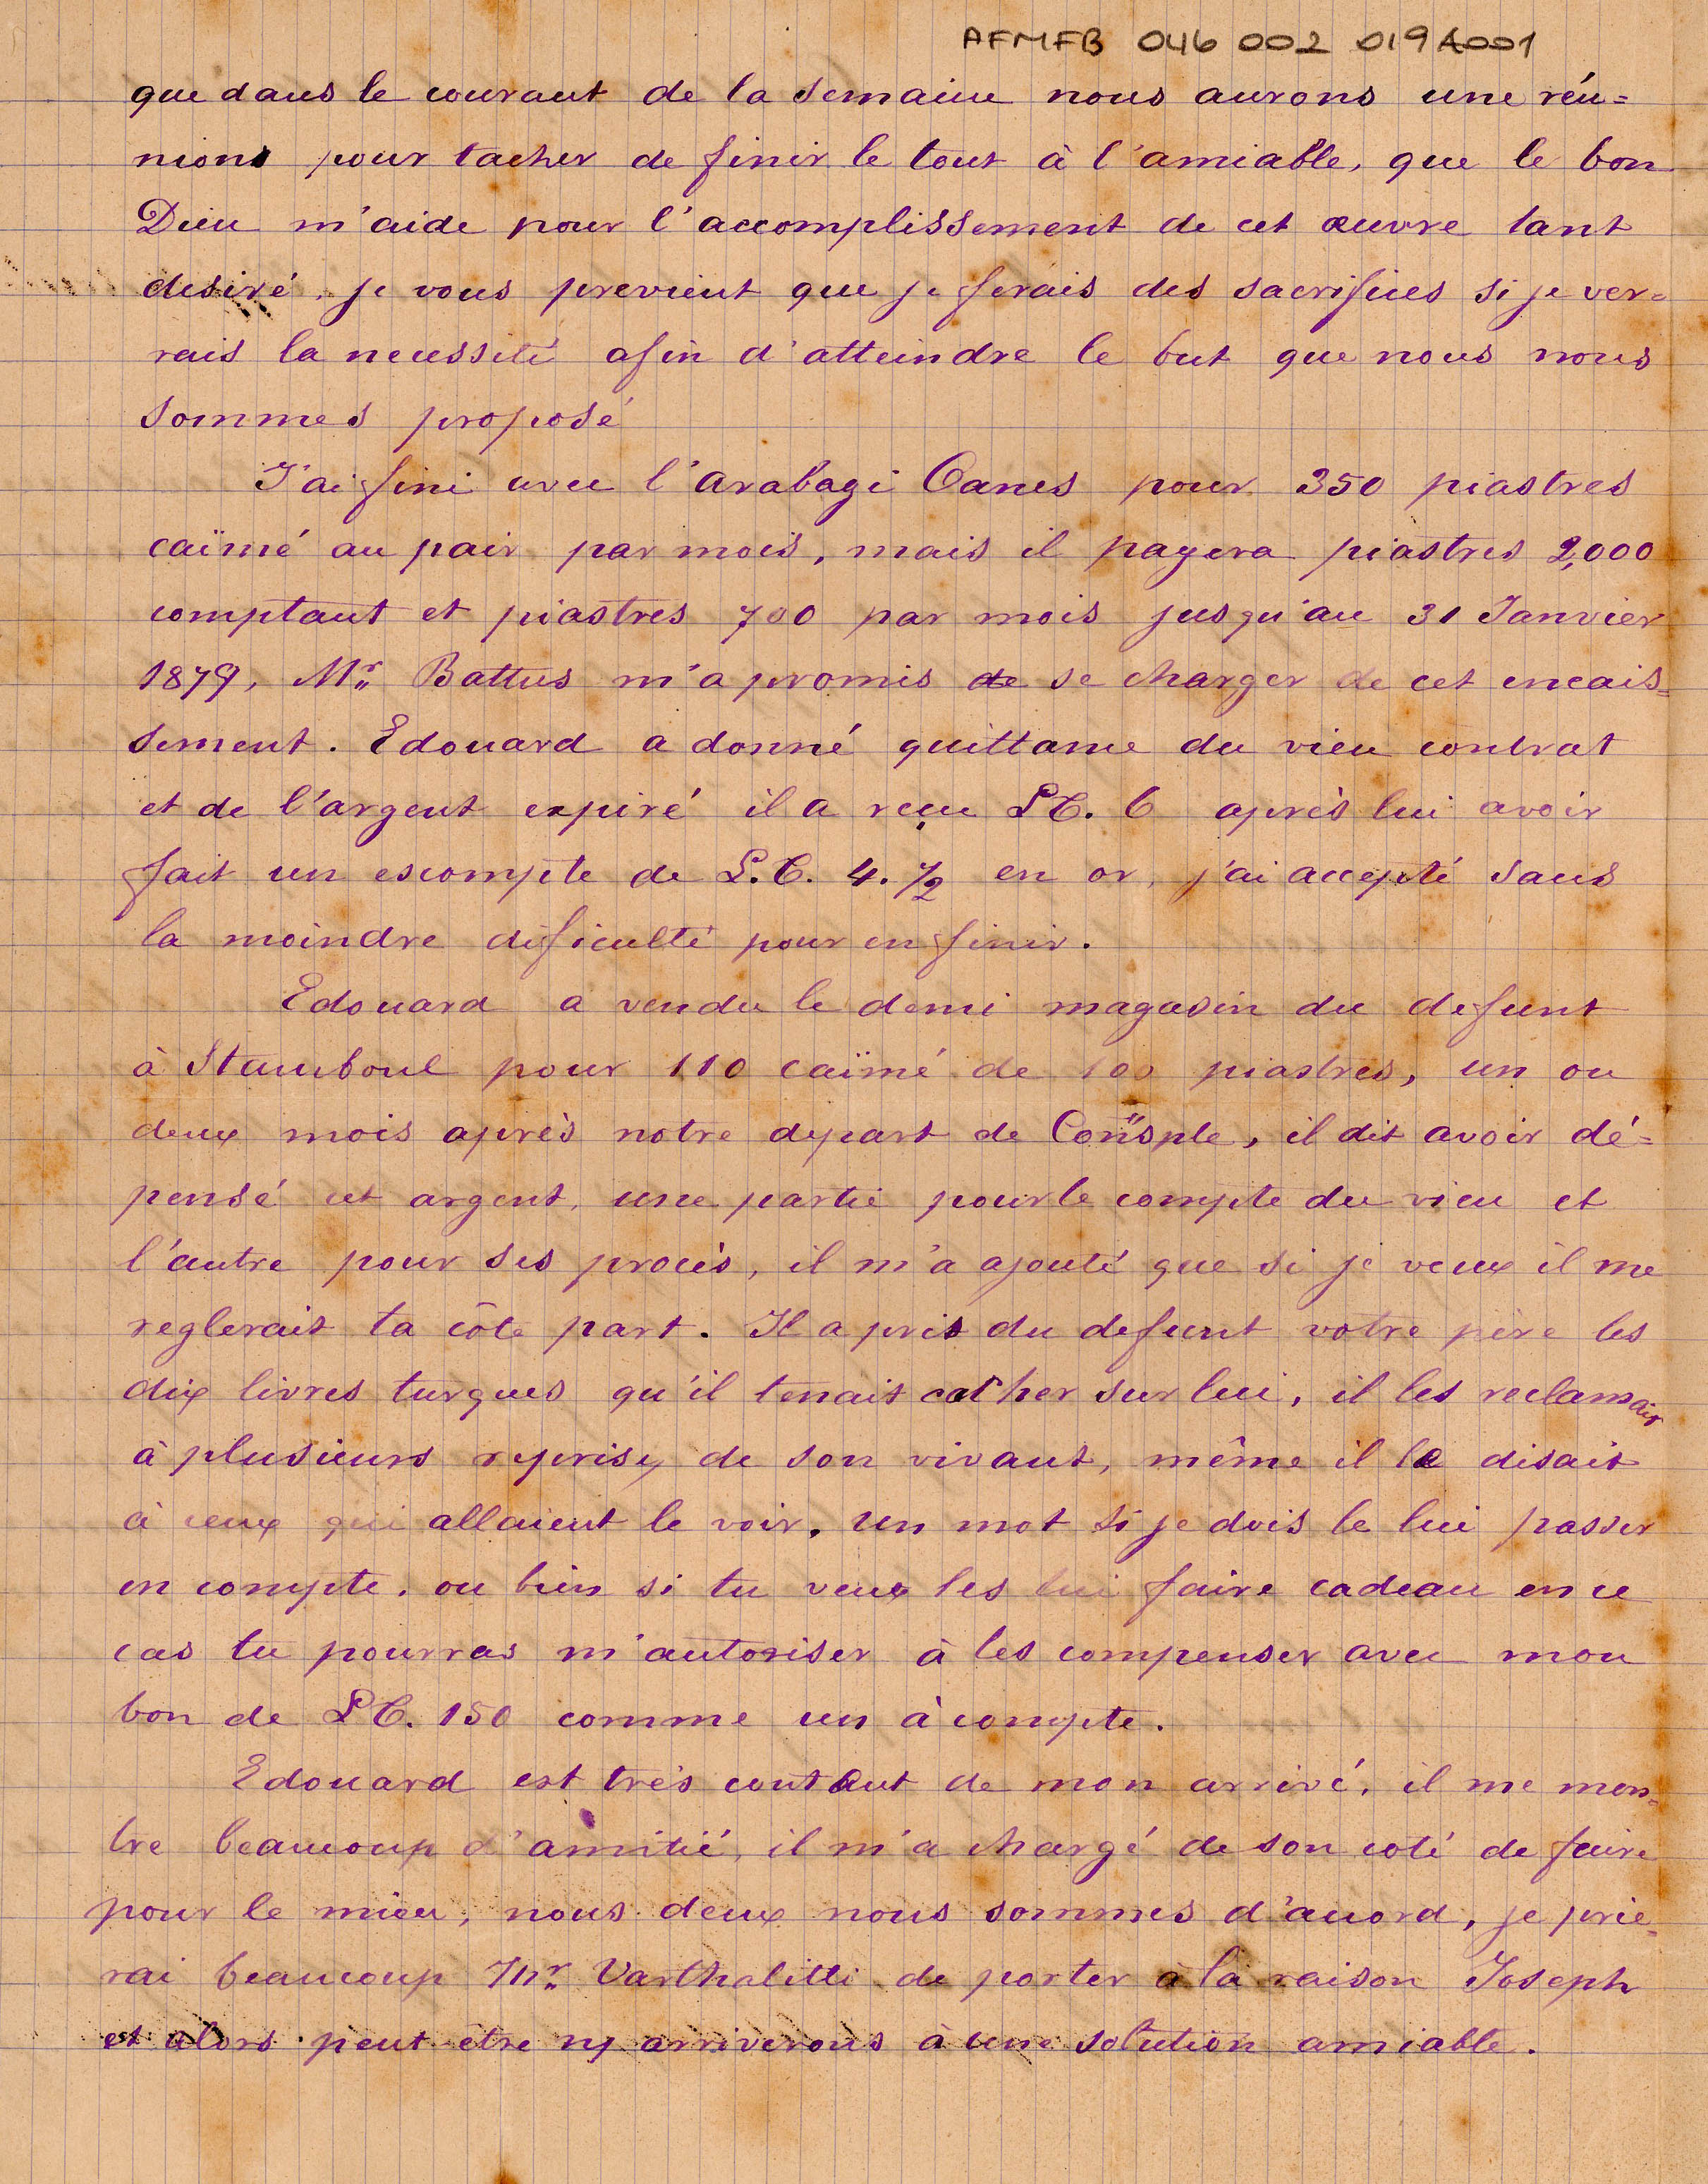 AFMFB 046 002 019A001
que dans le courant de la semaine nous aurons une réu=
nions pour tacher de finir le tout à l'amiable, que le bon
Dieu m'aide pour l'accomplissement de cet œuvre tant
desiré, je vous previent que je ferais des sacrifices si je ver=
rais la necessité afin d'atteindre le but que nous nous
sommes proposé
J'ai fini avec l'arabagi Canes pour 350 piastres
caïmé au pair par mois, mais il payera piastres 2,000
comptant et piastres 700 par mois jusqu'au 31 Janvier
1879, Mr. Battus m'a promis de se charger de cet encais=
sement. Edouard a donné quittance du vieu contrat
et de l'argent expiré il a reçu LT. 6 après lui avoir
fait un escompte de L.T. 4. 1/2 en or, j'ai accepté sans
la moindre dificulté pour en finir.
Edouard a vendu le demi magasin du defunt
à Stamboul pour 110 caïmé de 100 piastres, un ou
deux mois après notre depart de Consple, il dit avoir dé=
pensé cet argent, une partie pour le compte du vieu et
l'autre pour ses procès, il m'a ajouté que si je veux il me
reglerait ta côte part. Il a pris du defunt votre père les
dix livres turques qu'il tenait cacher sur lui, il les reclamait
à plusieurs reprises de son vivant, même il le disait
à ceux qui allaient le voir. Un mot si je dois le lui passer
en compte, ou bien si tu veux les lui faire cadeau en ce
cas tu pourras m'autoriser à les compenser avec mon
bon de LT. 150 comme un à compte.
Edouard est très contant de mon arrivé, il me mon=
tre beaucoup d'amitié, il m'a chargé de son coté de faire
pour le mieu, nous deux nous sommes d'accord, je prie=
rai beaucoup Mr. Varthalitti de porter à la raison Joseph
et alors peut-etre ns arriverons à une solution amiable.